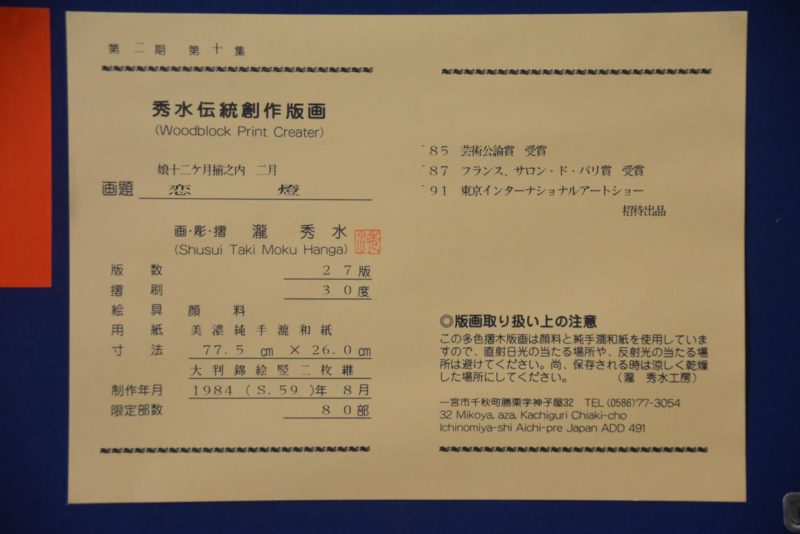 第二期 第十集
秀水伝統創作版画
(Woodblock Print Creater)
娘十二ケ月揃之内 二月
画題 恋 燈
画・彫・摺 瀧 秀水
(Shusui Taki Moku Hanga)
版数 27版
摺刷 30度
絵具 顔料
用紙 美濃純手漉和紙
寸法 77.5 cm × 26.0 cm
大判錦絵竪二枚継
制作年月 1984 (S.59)年 8月
限定部数 80部
'85 芸術公論賞 受賞
'87 フランス、サロン・ド・パリ賞 受賞
'91 東京インターナショナルアートショー
招待出品
◎版画取り扱い上の注意
この多色摺木版画は顔料と純手漉和紙を使用していま
すので、直射日光の当たる場所や、反射光の当たる場
所は避けてください。尚、保存される時は涼しく乾燥
した場所にしてください。 (瀧 秀水工房)
一宮市千秋町勝栗字神子屋32 TEL (0586)77-3054
32 Mikoya, aza, Kachiguri Chiaki-cho
Ichinomiya-shi Aichi-pre Japan ADD 491